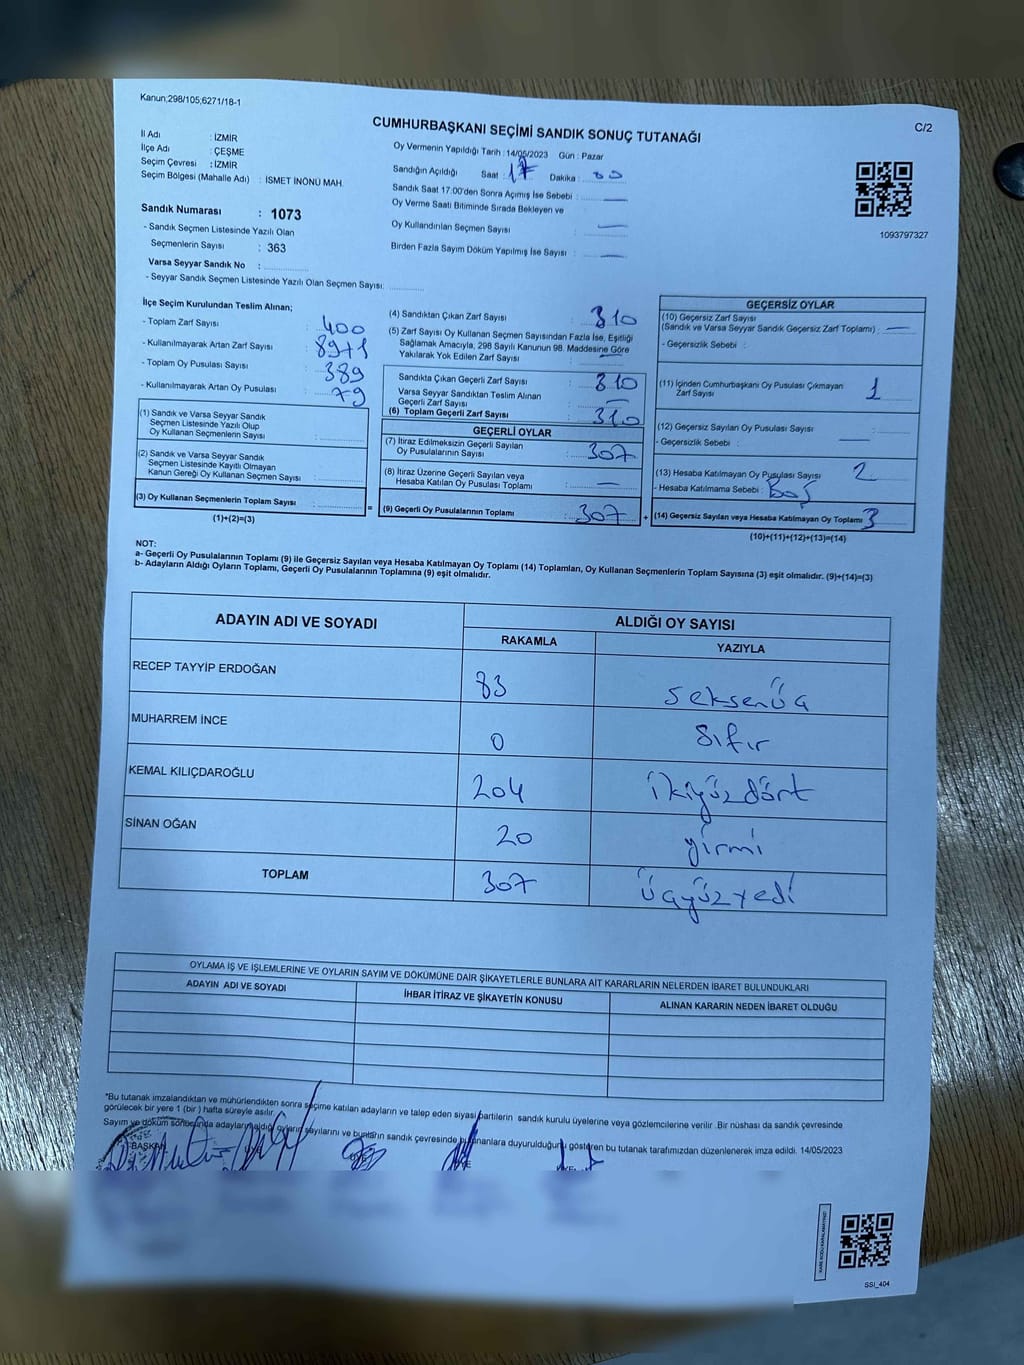 Kanun;298/105;6271/18-1
C/2
CUMHURBAŞKANI SEÇİMİ SANDIK SONUÇ TUTANAĞI
İl Adı : İZMİR
İlçe Adı : ÇEŞME
Seçim Çevresi : İZMİR
Seçim Bölgesi (Mahalle Adı) : İSMET İNÖNÜ MAH.
Sandık Numarası : 1073
- Sandık Seçmen Listesinde Yazılı Olan
Seçmenlerin Sayısı : 363
Varsa Seyyar Sandık No :
- Seyyar Sandık Seçmen Listesinde Yazılı Olan Seçmen Sayısı:
Oy Vermenin Yapıldığı Tarih : 14/05/2023 Gün : Pazar
Sandığın Açıldığı Saat : 17 Dakika : 00
Sandık Saat 17:00'den Sonra Açımış İse Sebebi : —
Oy Verme Saati Bitiminde Sırada Bekleyen ve
Oy Kullandırılan Seçmen Sayısı : —
Birden Fazla Sayım Döküm Yapılmış İse Sayısı : —
1093797327
İlçe Seçim Kurulundan Teslim Alınan;
- Toplam Zarf Sayısı : 400
- Kullanılmayarak Artan Zarf Sayısı : 89+1
- Toplam Oy Pusulası Sayısı : 389
- Kullanılmayarak Artan Oy Pusulası : 79
(1) Sandık ve Varsa Seyyar Sandık
Seçmen Listesinde Yazılı Olup
Oy Kullanan Seçmenlerin Sayısı :
(2) Sandık ve Varsa Seyyar Sandık
Seçmen Listesinde Kayıtlı Olmayan
Kanun Gereği Oy Kullanan Seçmen Sayısı :
(3) Oy Kullanan Seçmenlerin Toplam Sayısı :
(1)+(2)=(3)
(4) Sandıktan Çıkan Zarf Sayısı : 310
(5) Zarf Sayısı Oy Kullanan Seçmen Sayısından Fazla İse, Eşitliği
Sağlamak Amacıyla, 298 Sayılı Kanunun 98. Maddesine Göre
Yakılarak Yok Edilen Zarf Sayısı : —
Sandıkta Çıkan Geçerli Zarf Sayısı : 310
Varsa Seyyar Sandıktan Teslim Alınan
Geçerli Zarf Sayısı : —
(6) Toplam Geçerli Zarf Sayısı : 310
GEÇERLİ OYLAR
(7) İtiraz Edilmeksizin Geçerli Sayılan
Oy Pusulalarının Sayısı : 307
(8) İtiraz Üzerine Geçerli Sayılan veya
Hesaba Katılan Oy Pusulası Toplamı : —
= (9) Geçerli Oy Pusulalarının Toplamı : 307
GEÇERSİZ OYLAR
(10) Geçersiz Zarf Sayısı
(Sandık ve Varsa Seyyar Sandık Geçersiz Zarf Toplamı) : —
- Geçersizlik Sebebi :
(11) İçinden Cumhurbaşkanı Oy Pusulası Çıkmayan
Zarf Sayısı : 1
(12) Geçersiz Sayılan Oy Pusulası Sayısı :
- Geçersizlik Sebebi : —
(13) Hesaba Katılmayan Oy Pusulası Sayısı 2
- Hesaba Katılmama Sebebi : Boş
+ (14) Geçersiz Sayılan veya Hesaba Katılmayan Oy Toplamı 3
(10)+(11)+(12)+(13)=(14)
NOT:
a- Geçerli Oy Pusulalarının Toplamı (9) ile Geçersiz Sayılan veya Hesaba Katılmayan Oy Toplamı (14) Toplamları, Oy Kullanan Seçmenlerin Toplam Sayısına (3) eşit olmalıdır. (9)+(14)=(3)
b- Adayların Aldığı Oyların Toplamı, Geçerli Oy Pusulalarının Toplamına (9) eşit olmalıdır.
ADAYIN ADI VE SOYADI ALDIĞI OY SAYISI
RAKAMLA YAZIYLA
RECEP TAYYİP ERDOĞAN 83 seksenüç
MUHARREM İNCE 0 sıfır
KEMAL KILIÇDAROĞLU 204 ikiyüzdört
SİNAN OĞAN 20 yirmi
TOPLAM 307 üçyüzyedi
OYLAMA İŞ VE İŞLEMLERİNE VE OYLARIN SAYIM VE DÖKÜMÜNE DAİR ŞİKAYETLERLE BUNLARA AİT KARARLARIN NELERDEN İBARET BULUNDUKLARI
ADAYIN ADI VE SOYADI İHBAR İTİRAZ VE ŞİKAYETİN KONUSU ALINAN KARARIN NEDEN İBARET OLDUĞU
"Bu tutanak imzalandıktan ve mühürlendikten sonra seçime katılan adayların ve talep eden siyasi partilerin sandık kurulu üyelerine veya gözlemcilerine verilir .Bir nüshası da sandık çevresinde
görülecek bir yere 1 (bir ) hafta süreyle asılır.
Sayım ve döküm sonucunda adayların aldığı oyların sayılarını ve bunların sandık çevresinde bulunanlara duyurulduğunu gösteren bu tutanak tarafımızdan düzenlenerek imza edildi. 14/05/2023
BAŞKAN
SSI_404